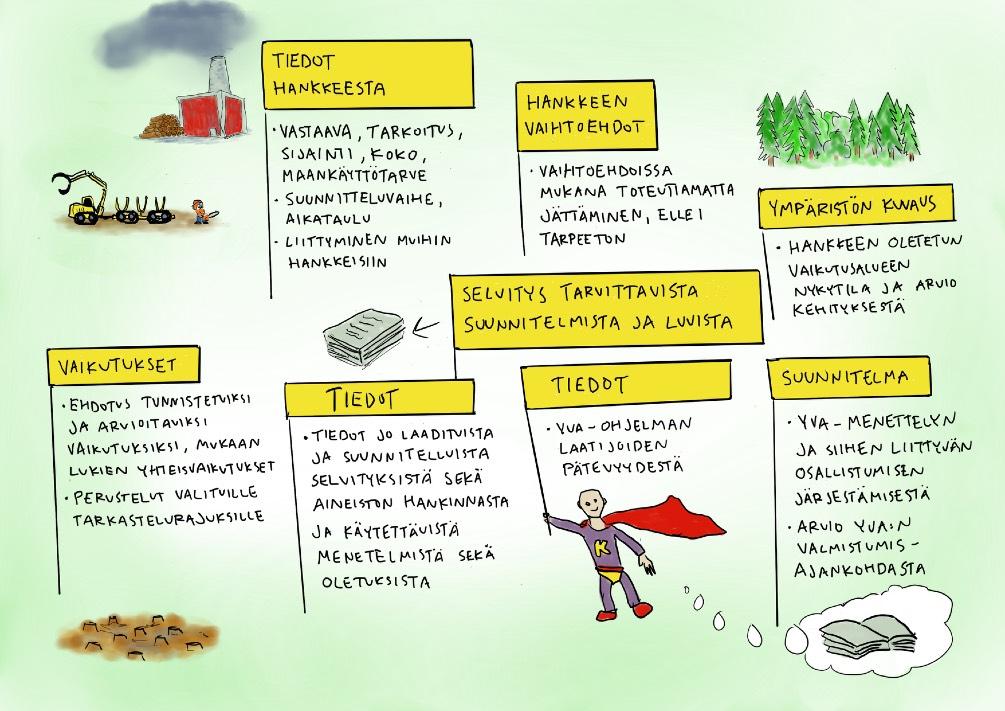 TIEDOT
HANKKEESTA
• VASTAAVA, TARKOITUS,
SIJAINTI, KOKO,
MAANKÄYTTÖTARVE
• SUUNNITTELUVAIHE,
AIKATAULU
• LIITTYMINEN MUIHIN
HANKKEISIIN
HANKKEEN
VAIHTOEHDOT
• VAIHTOEHDOISSA
MUKANA TOTEUTTAMATTA
JÄTTÄMINEN, ELLEI
TARPEETON
YMPÄRISTÖN KUVAUS
• HANKKEEN OLETETUN
VAIKUTUSALUEEN
NYKYTILA JA ARVIO
KEHITYKSESTÄ
SELVITYS TARVITTAVISTA
SUUNNITELMISTA JA LUVISTA
VAIKUTUKSET
• EHDOTUS TUNNISTETUIKSI
JA ARVIOITAVIKSI
VAIKUTUKSIKSI, MUKAAN
LUKIEN YHTEISVAIKUTUKSET
• PERUSTELUT VALITUILLE
TARKASTELURAJUKSILLE
TIEDOT
• TIEDOT JO LAADITUISTA
JA SUUNNITELLUISTA
SELVITYKSISTÄ SEKÄ
AINEISTON HANKINNASTA
JA KÄYTETTÄVISTÄ
MENETELMISTÄ SEKÄ
OLETUKSISTA
TIEDOT
• YVA-OHJELMAN
LAATIJOIDEN
PÄTEVYYDESTÄ
K
SUUNNITELMA
• YVA-MENETTELYN
JA SIIHEN LIITTYVÄN
OSALLISTUMISEN
JÄRJESTÄMISESTÄ
• ARVIO YVA:N
VALMISTUMIS-
AJANKOHDASTA